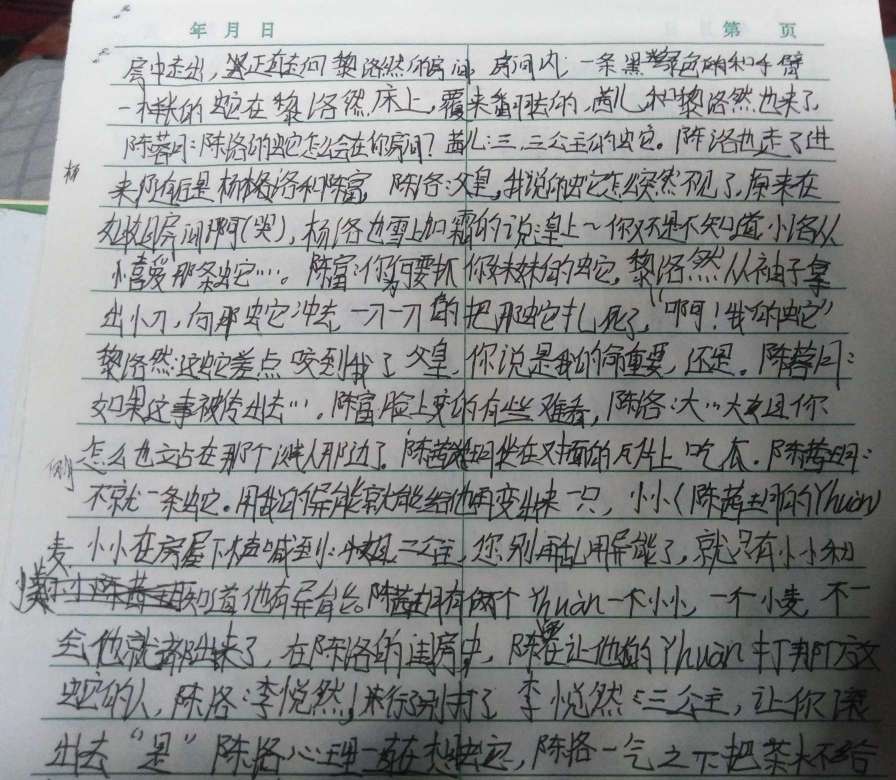 年 月 日 第 页
房中走出，正直去向黎洛然的房间，房间内：一条黑绿色的和手臂
一样长的蛇在黎洛然床上，茜儿和黎洛然也来了
陈蓉问：陈洛的蛇怎么会在你房间？茜儿：三、三公主的蛇。陈洛也走了进
杨
来后是杨洛和陈富，陈洛：父皇，我说的蛇怎么突然不见了，原来在
房间啊(哭)，杨洛也雪上加霜的说：皇上～你又不是不知道，小洛从
小喜爱那条蛇…。陈富：你为何要抓你妹妹的蛇，黎洛然从袖子拿
出小刀，向那蛇冲去，一刀一刀的把那蛇扎死了，“啊！我的蛇”
黎洛然：这蛇差点咬到我了，父皇，你说是我的命重要，还是。陈蓉问：
如果这事被传出去…。陈富脸上变的有些难看，陈洛：大…大姐你
怎么也立占在那个人那边了。陈茜坐在对面的瓦片上吃瓜。陈茜：
不就一条蛇。用我的异能就能给他再变出来一只，小小(陈茜的Yhuàn)
麦 小小在房屋下大声喊到：三公主，您别再乱用异能了，就只有小小和
知道他有异能。陈茜有两个Yhuàn一个小小，一个小麦，不一
会他就都出来了，在陈洛的闺房中，陈在让他的Yhuàn打那放
蛇的人，陈洛：李悦然！来行了别打了，李悦然：三公主，让你滚
出去“是”陈洛心理一直在想蛇，陈洛一气之下把茶水不给